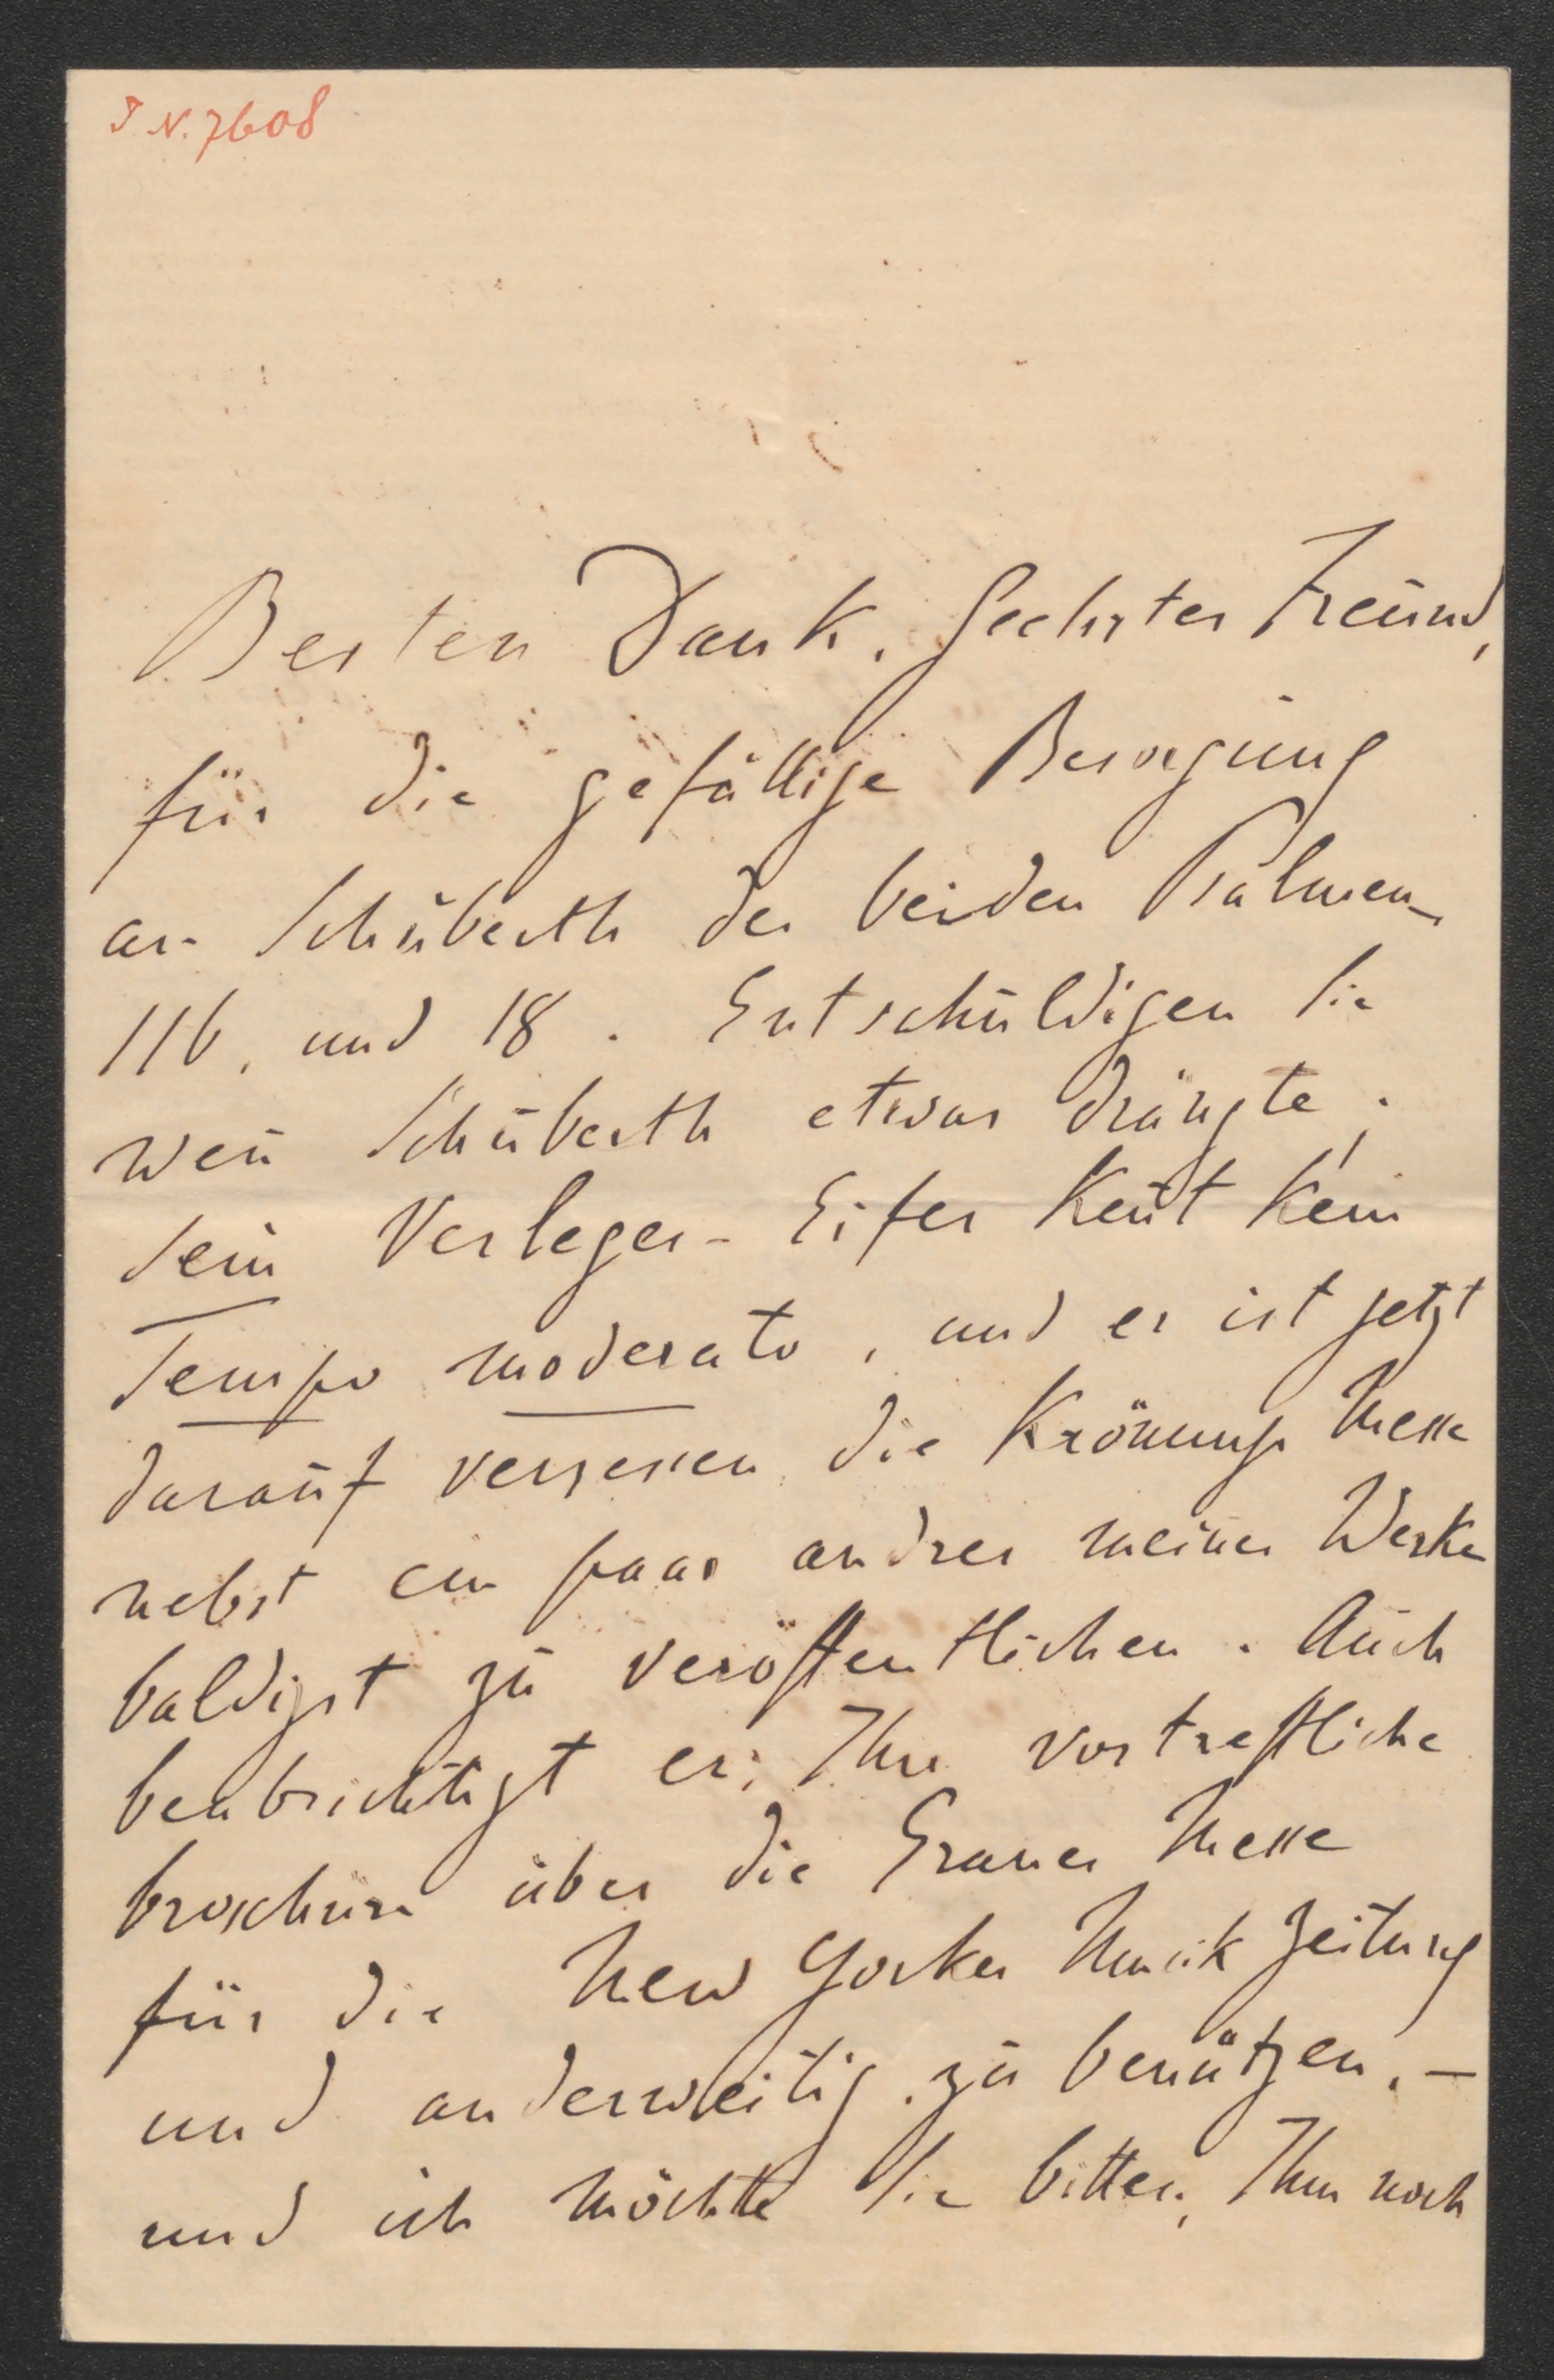 I N. 7608
Besten Dank, geehrter Freund,
für die gefällige Besorgung
an Schuberth der beiden Psalmen
116, und 18. Entschuldigen Sie
weñ Schuberth etwas drängte;
Sein Verleger-Eifer keñt kein
Tempo moderato, und er ist jetzt
darauf versessen die Krönungs Messe
nebst ein paar andrer meiner Werke
baldigst zu veröffentlichen. Auch
beabsichtigt er, Ihre vortreffliche
broschüre über die Graner Messe
für die New Yorker Musik Zeitung
und anderweitig zu benützen, –
und ich möchte Sie bitten, Ihm noch